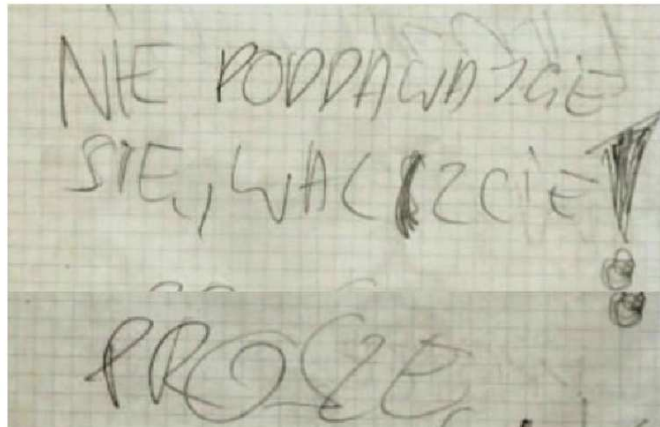 NIE PODDAWAJCIE
SIĘ, WALCZCIE!
PROSZĘ